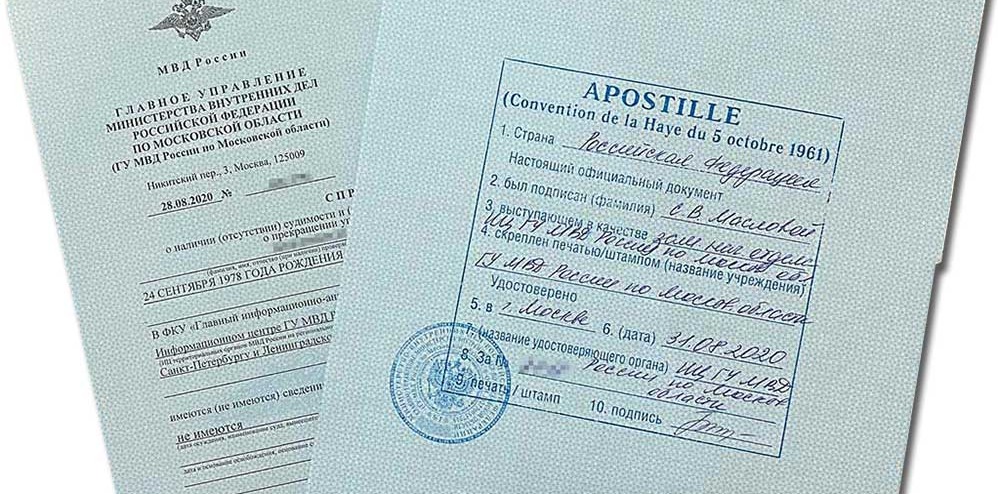 МВД России
ГЛАВНОЕ УПРАВЛЕНИЕ
МИНИСТЕРСТВА ВНУТРЕННИХ ДЕЛ
РОССИЙСКОЙ ФЕДЕРАЦИИ
ПО МОСКОВСКОЙ ОБЛАСТИ
(ГУ МВД России по Московской области)
Никитский пер., 3, Москва, 125009
28.08.2020 №
СПР
о наличии (отсутствии) судимости и
о прекращении
24 СЕНТЯБРЯ 1978 ГОДА РОЖДЕНИЯ
В ФКУ «Главный информационно-ан
Информационном центре ГУ МВД
Санкт-Петербургу и Ленинградско
имеются (не имеются) сведени
не имеются
APOSTILLE
(Convention de la Haye du 5 octobre 1961)
1. Страна Российская Федерация
Настоящий официальный документ
2. был подписан (фамилия) С.В. Масловой
3. выступающем в качестве зам. нач. отдела
ИЦ ГУ МВД России по москов. обл.
4. скреплен печатью/штампом (название учреждения)
ГУ МВД России по Москов. области
Удостоверено
5. в г. Москве 6. (дата) 31.08.2020
7. (название удостоверяющего органа) ИЦ ГУ МВД
8. За № России по Москов.
области
9. печать / штамп 10. подпись